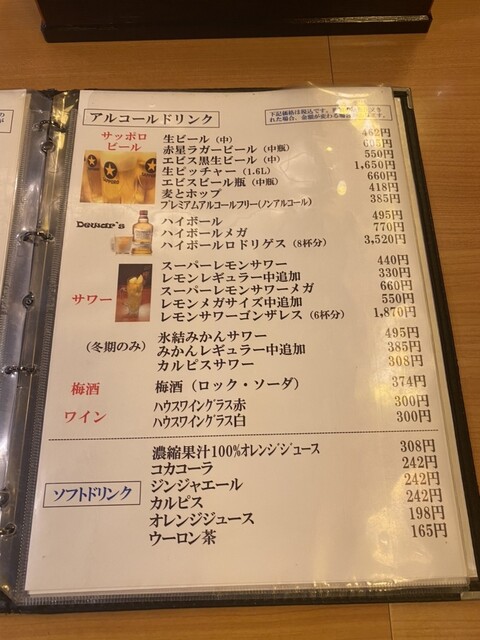 アルコールドリンク
下記価格は税込です。
れた場合、金額が変わる
サッポロ
ビール
生ビール（中） 462円
赤星ラガービール（中瓶）
エビス黒生ビール（中） 550円
生ピッチャー（1.6L） 1,650円
エビスビール瓶（中瓶） 660円
麦とホップ 418円
プレミアムアルコールフリー(ノンアルコール) 385円
Dewar's
ハイボール 495円
ハイボールメガ 770円
ハイボールロドリゲス（8杯分） 3,520円
サワー
スーパーレモンサワー 440円
レモンレギュラー中追加 330円
スーパーレモンサワーメガ 660円
レモンメガサイズ中追加 550円
レモンサワーゴンザレス（6杯分） 1,870円
（冬期のみ）
氷結みかんサワー 495円
みかんレギュラー中追加 385円
カルピスサワー 308円
梅酒 梅酒（ロック・ソーダ） 374円
ワイン ハウスワイングラス赤 300円
ハウスワイングラス白 300円
ソフトドリンク
濃縮果汁100%オレンジジュース 308円
コカコーラ 242円
ジンジャエール 242円
カルピス 242円
オレンジジュース 198円
ウーロン茶 165円